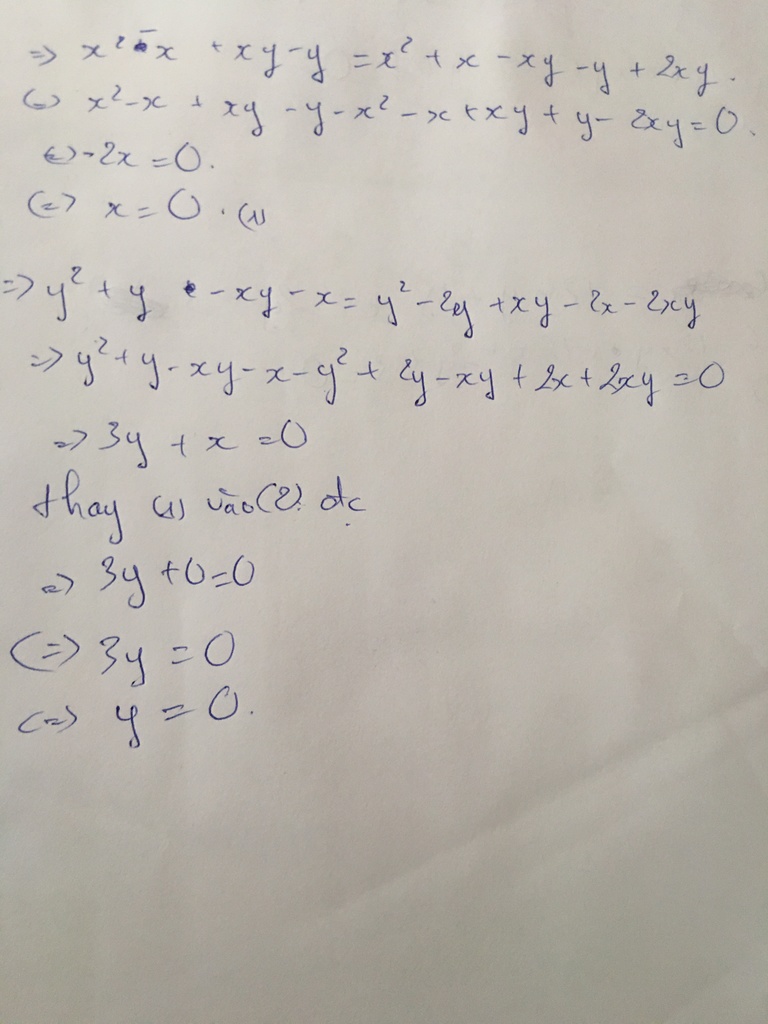 => x² - x + xy - y = x² + x - xy - y + 2xy.
<=> x² - x + xy - y - x² - x + xy + y - 2xy = 0.
<=> -2x = 0.
<=> x = 0. (1)
=> y² + y - xy - x = y² - 2y + xy - 2x - 2xy
=> y² + y - xy - x - y² + 2y - xy + 2x + 2xy = 0
=> 3y + x = 0
thay (1) vào (2). đc
=> 3y + 0 = 0
<=> 3y = 0
<=> y = 0.